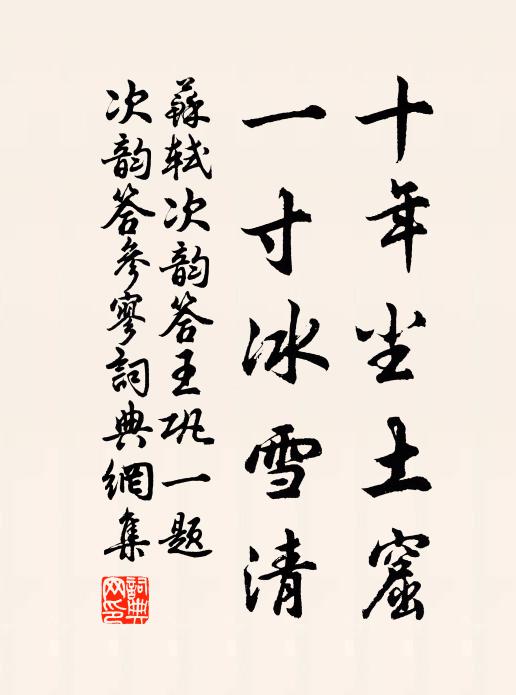 十年尘土窟
一寸冰雪清
蘇軾次韵答王巩一题
次韵答參寥詞典網集
詞典
网印